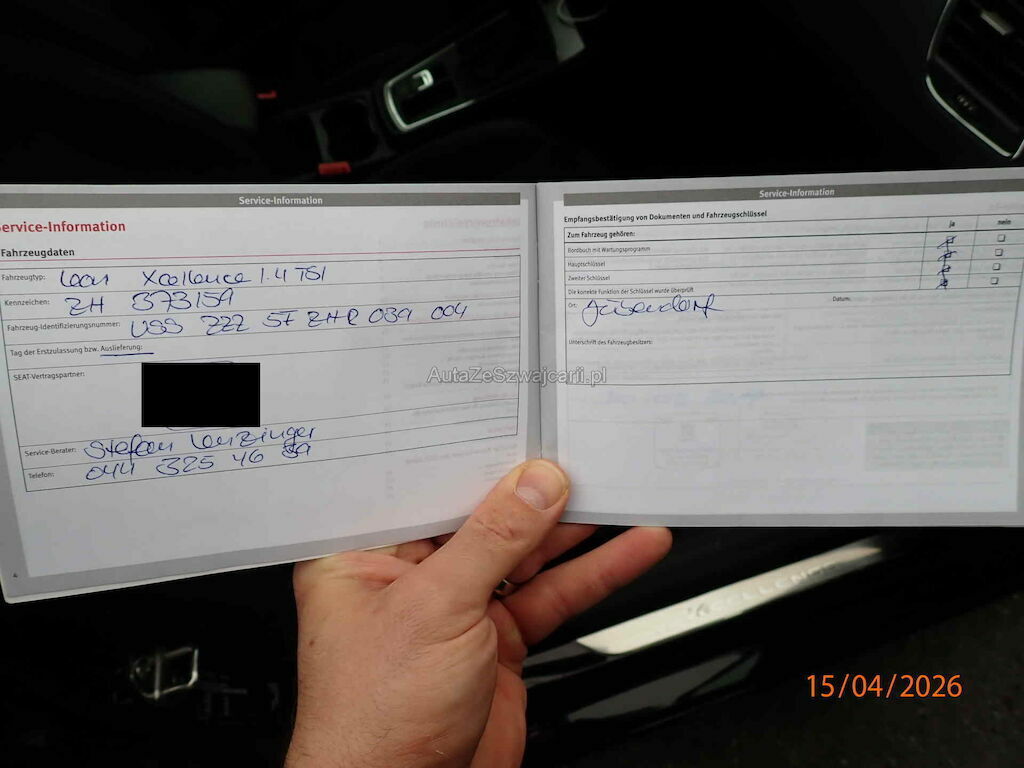 Service-Information
Service-Information
Fahrzeugdaten
Fahrzeugtyp: Leon Xcellence 1.4 TSI
Kennzeichen: ZH 873159
Fahrzeug-Identifizierungsnummer: VSS ZZZ 5F ZHR 039 004
Tag der Erstzulassung bzw. Auslieferung:
SEAT-Vertragspartner:
Service-Berater: Stefan
Telefon: 044 325 46
4
Service-Information
Empfangsbestätigung von Dokumenten und Fahrzeugschlüssel
Zum Fahrzeug gehören: ja nein
Bordbuch mit Wartungsprogramm
Hauptschlüssel
Zweiter Schlüssel
Die korrekte Funktion der Schlüssel wurde überprüft
Ort: Datum:
Unterschrift des Fahrzeugbesitzers:
AutaZeSzwajcarii.pl
15/04/2026